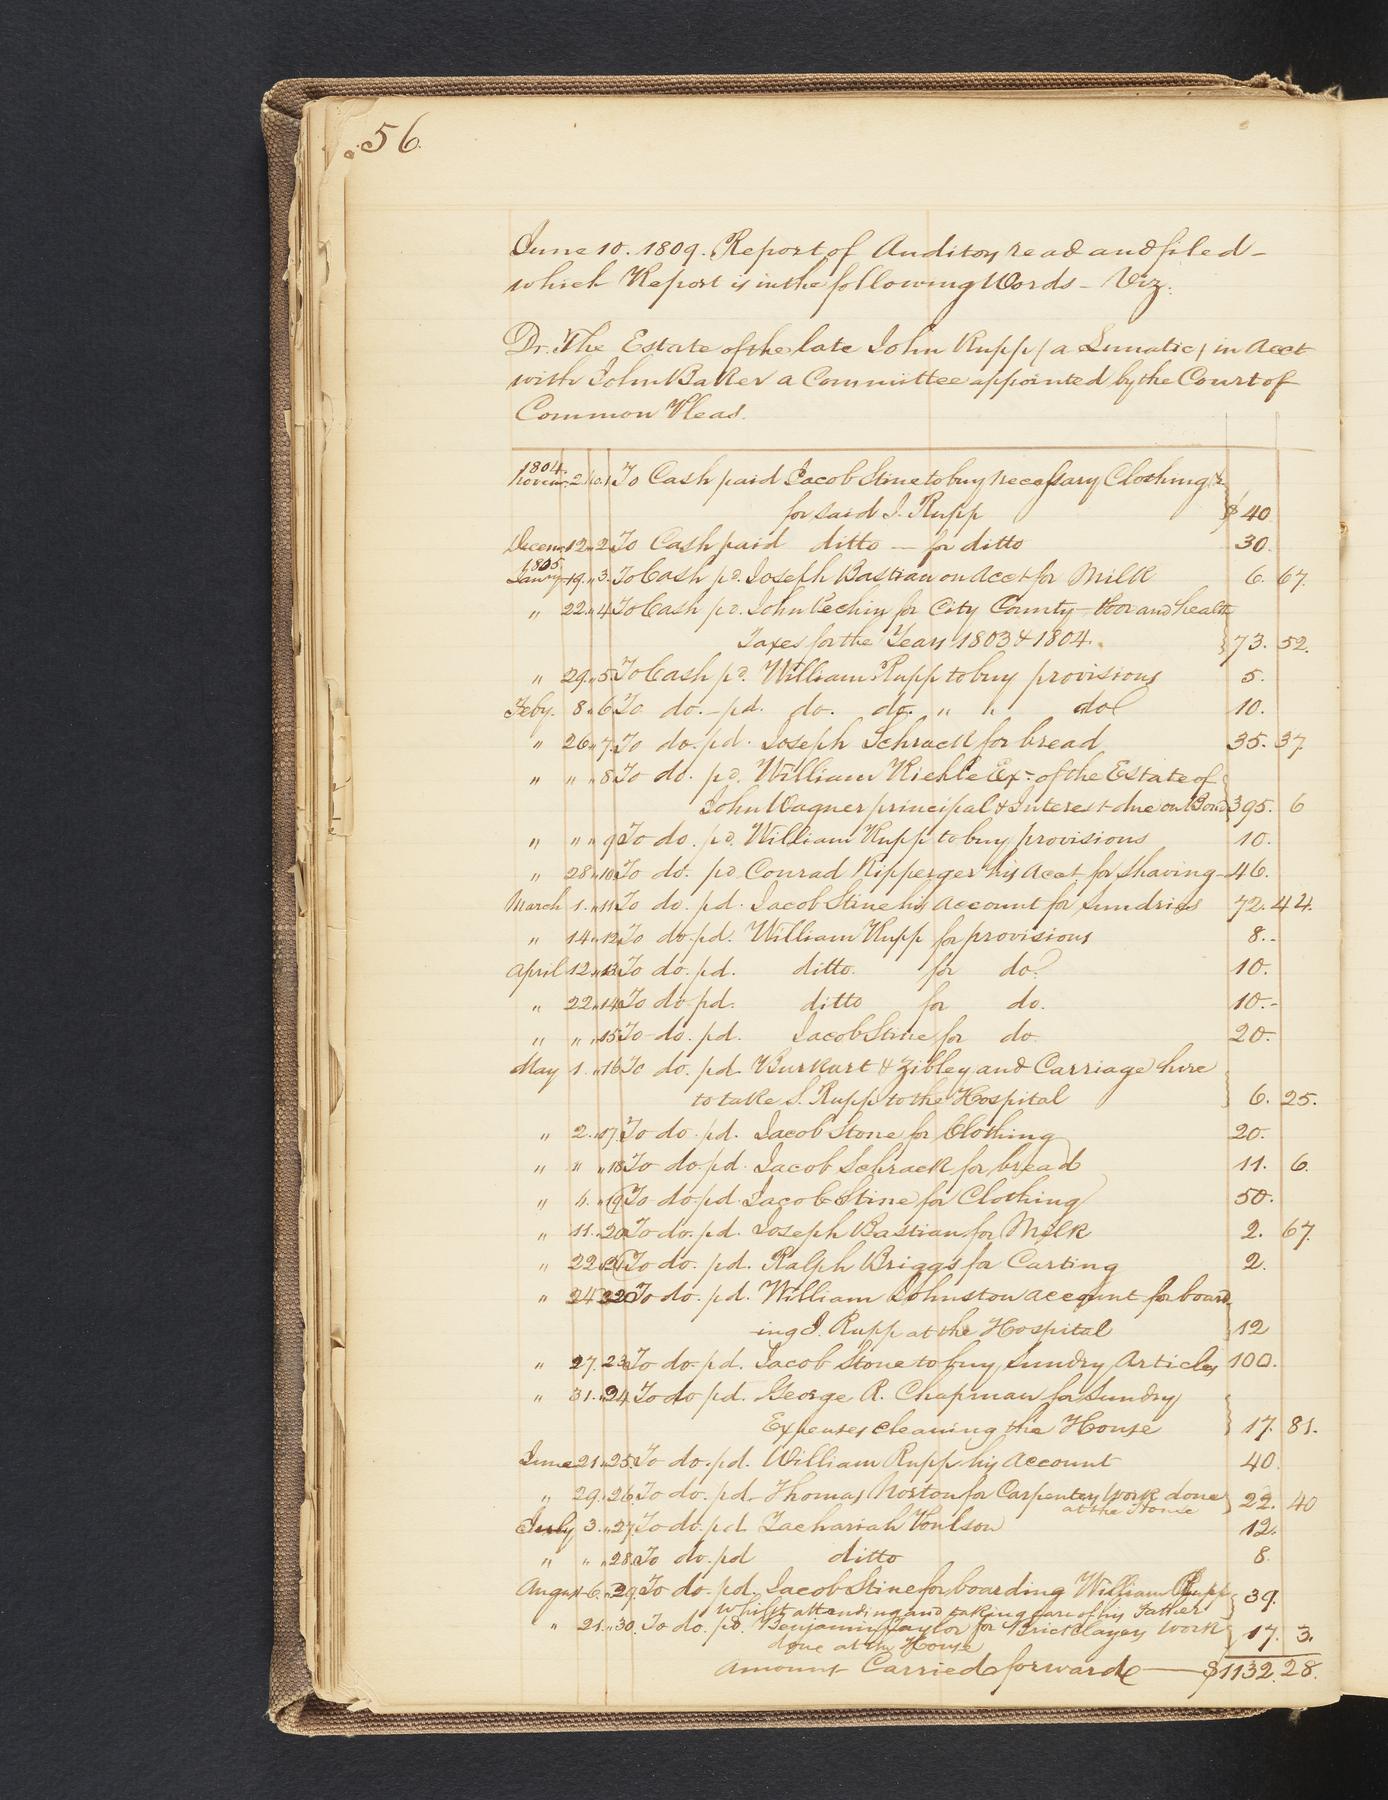 56.
June 10. 1809. Report of Auditors read and filed -
which Report is in the following Words - Viz.
Dr. The Estate of the late John Rupp (a Lunatic) in Acct
with John Baker a Committee appointed by the Court of
Common Pleas.
1804.
Novem. 2. No. 1 To Cash paid Jacob Stine to buy necessary Clothing &
for said J. Rupp $ 40
Decem. 12 " 2 To Cash paid ditto — for ditto 30.
1805.
Janry 19. " 3. To Cash pd. Joseph Bastian on Acct for Milk 6. 67.
" 22. " 4 To Cash pd. John Pechin for City County - Poor and health
Taxes for the Years 1803 & 1804. 73. 52.
" 29. " 5 To Cash pd. William Rupp to buy provisions 5.
Feby. 8. " 6 To do. - pd. do. do. " " do 10.
" 26 " 7 To do. pd. Joseph Schrack for bread 35. 37
" " " 8 To do. pd. William Kiehle Exr. of the Estate of
John Wagner principal & Interest due on Bond 395. 6
" " " 9 To do. pd. William Rupp to buy provisions 10.
" 28 " 10 To do. pd Conrad Ripperger his Acct for Shaving - 46.
March 1. " 11 To do. pd. Jacob Stine his Account for Sundries 72. 44.
" 14 " 12 To do. pd. William Rupp for provisions 8. -
April 12 " 13 To do. pd. ditto. for do. 10.
" 22 " 14 To do pd. ditto for do. 10. -
" " " 15 To do. pd. Jacob Stine for do. 20.
May 1. " 16 To do. pd. Burkart & Zibley and Carriage hire
to take J. Rupp to the Hospital 6. 25.
" 2. " 17. To do. pd. Jacob Stone for Clothing 20.
" " " 18 To do. pd. Jacob Schrack for bread 11. 6.
" 4. " 19 To do. pd. Jacob Stine for Clothing 50.
" 11. " 20 To do. pd. Joseph Bastian for Milk 2. 67
" 22 " 21 To do. pd. Ralph Briggs for Carting 2.
" 24 22 To do. pd. William Johnston account for board
ing J. Rupp at the Hospital 12
" 27. 23 To do. pd. Jacob Stone to buy Sundry Articles 100.
" 31. " 24 To do pd. George R. Chapman for Sundry
Expenses cleaning the House 17. 81.
June 21 " 25 To do. pd. William Rupp his Account 40.
" 29. " 26. To do. pd. Thomas Norton for Carpenters Work done
at the House 22. 40
July 3. " 27. To do. pd Zachariah Poulson 12.
" " " 28 To do. pd ditto 8.
August 6. " 29. To do. pd. Jacob Stine for boarding William Rupp
whilst attending and taking care of his Father 39.
" 21. " 30. To do. pd. Benjamin Taylor for Bricklayers Work
done at the House 17. 3.
Amount Carried forward — $1132. 28.